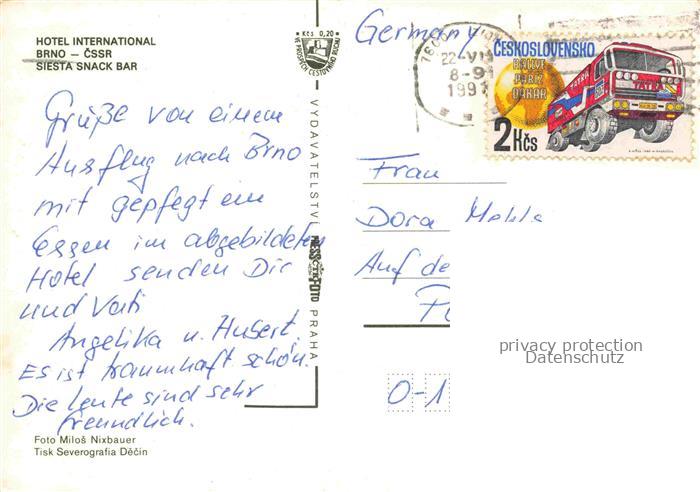 HOTEL INTERNATIONAL
BRNO – ČSSR
SIESTA SNACK BAR
Kčs 0,20
VE PROSPĚCH CESTOVNÍHO RUCHU
Grüße von einem
Ausflug nach Brno
mit gepfegt em
Essen im abgebildeten
Hotel senden Dir
und Vati
Angelika u. Hubert.
Es ist traumhaft schön.
Die Leute sind sehr
freundlich.
Foto Miloš Nixbauer
Tisk Severografia Děčín
VYDAVATELSTVÍ PRESSFOTO PRAHA
Germany
22.-VI
8-9
199
ČESKOSLOVENSKO
RALLYE
PAŘÍŽ
DAKAR
TATRA
2 Kčs
Frau
Dora
Auf de
privacy protection
Datenschutz
0-1